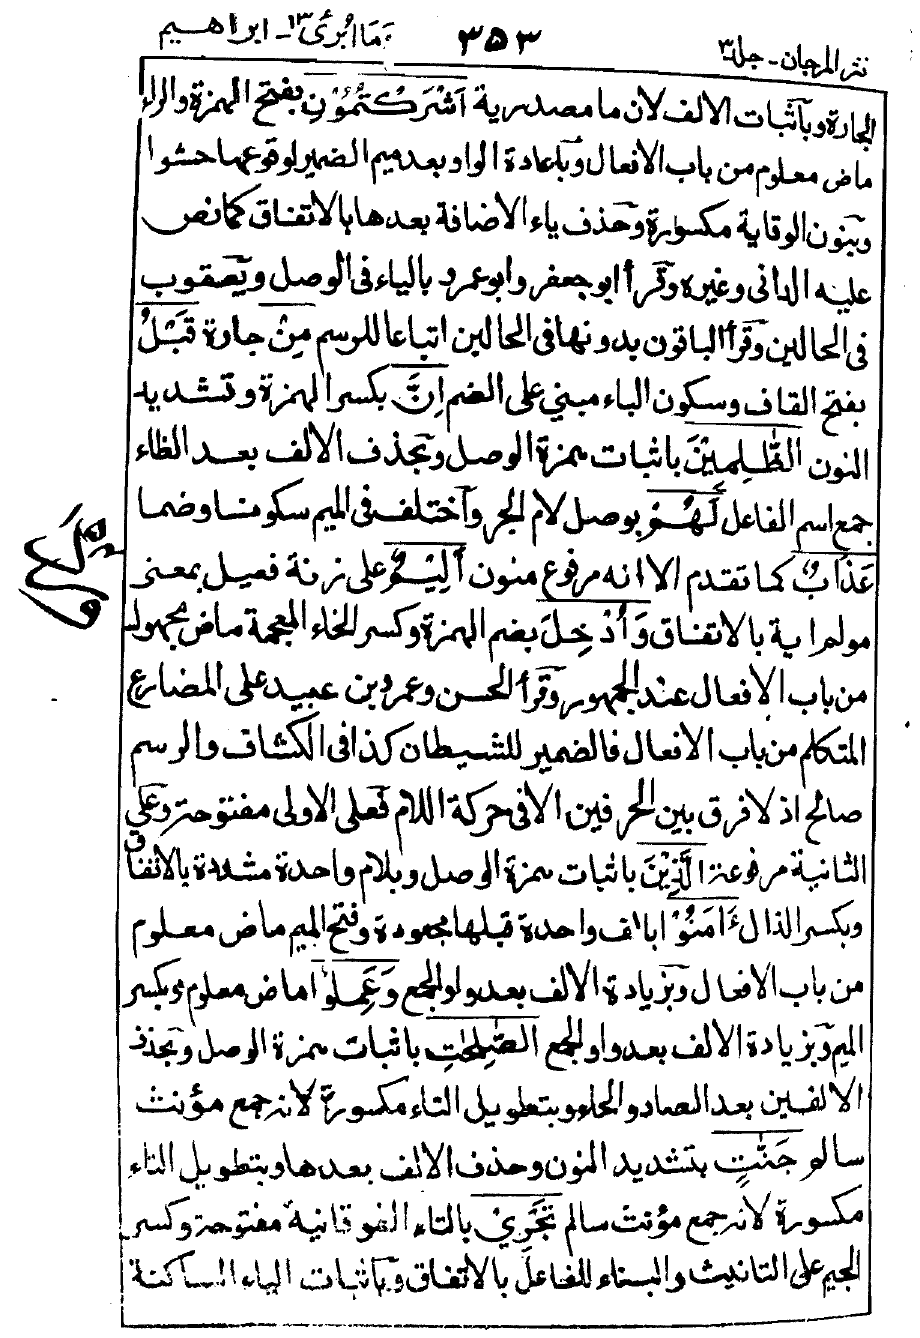 نثر المرجان - جلد٣ ٣٥٣ وما ابرئ ١٣ - ابراهيم
الجارة وبآثبات الالف لان ما مصدرية اَشْرَكْتُمُوْنِ بفتح الهمزة والراء
ماض معلوم من باب الافعال وبآعادة الواو بعد ميم الضمير لوقوعها حشوا
وبنون الوقاية مكسورة وحذف ياء الاضافة بعدها بالاتفاق كما نص
عليه الدانى وغيره وقرأ ابو جعفر وابو عمرو بالياء فى الوصل ويعقوب
فى الحالين وقرأ الباقون بدونها فى الحالين اتباعا للرسم مِنْ جارة قَبْلُ
بفتح القاف وسكون الباء مبني على الضم اِنَّ بكسر الهمزة وتشديد
النون الظّٰلِمِيْنَ باثبات همزة الوصل وبحذف الالف بعد الظاء
جمع اسم الفاعل لَهُمْ بوصل لام الجر واختلف فى الميم سكونا وضما
عَذَابٌ كما تقدم الا انه مرفوع منون اَلِيْمٌ على زنة فعيل بمعنى
مولم اية بالاتفاق وَاُدْخِلَ بضم الهمزة وكسر الخاء المعجمة ماض مجهول
من باب الافعال عند الجمهور وقرأ الحسن وعمرو بن عبيد على المضارع
المتكلم من باب الافعال فالضمير للشيطان كذا فى الكشاف والرسم
صالح اذ لا فرق بين الحرفين الا فى حركة اللام فعلى الاولى مفتوحة وعلى
الثانية مرفوعة الَّذِيْنَ باثبات همزة الوصل وبلام واحدة مشددة بالاتفاق
وبكسر الذال ءَامَنُوْا بالف واحدة قبلها مجعودة وفتح الميم ماض معلوم
من باب الافعال وبزيادة الالف بعد واو الجمع وَعَمِلُوا ماض معلوم وبكسر
الميم وبزيادة الالف بعد واو الجمع الصّٰلِحٰتِ باثبات همزة الوصل وبحذف
الالفين بعد الصاد والحاء وبتطويل التاء مكسورة لانه جمع مؤنث
سالم جَنّٰتٍ بتشديد النون وحذف الالف بعدها وبتطويل التاء
مكسورة لانه جمع مؤنث سالم تَجْرِيْ بالتاء الفوقانية مفتوحة وكسر
الجيم على التانيث والبناء للفاعل بالاتفاق وباثبات الياء الساكنة